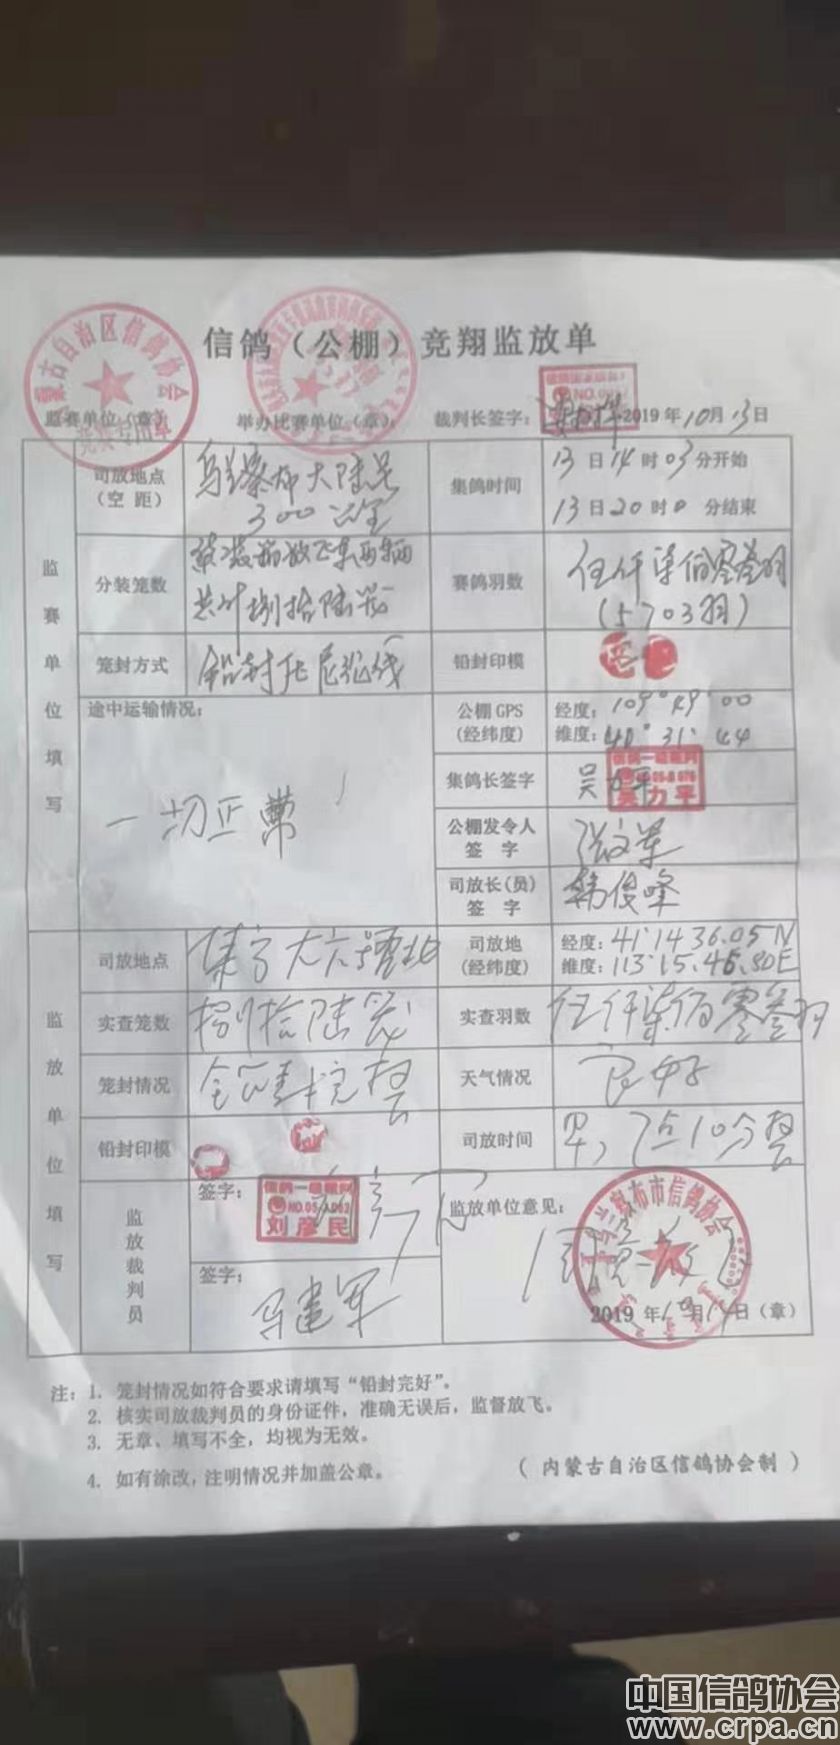 信鸽（公棚）竞翔监放单
蒙古自治区信鸽协会
竞赛专用章
监赛单位（章）： 举办比赛单位（章）： 裁判长签字： 2019年10月13日
监赛单位填写
司放地点（空 距） 乌兰察布大陆号 300公里
集鸽时间 13日14时03分开始
13日20时0分结束
分装笼数 共计捌拾陆笼
赛鸽羽数 伍仟柒佰零叁羽（5703羽）
笼封方式 铅封 尼龙线
铅封印模
途中运输情况： 一切正常！
公棚GPS（经纬度） 经度：109°49′00
维度：40°31′44
集鸽长签字 吴力平
信鸽一级裁判
吴力平
公棚发令人签 字 张文革
司放长(员)签 字 韩俊峰
监放单位填写
司放地点 集宁大六号
司放地（经纬度） 经度：41°14 36.05N
维度：113°15.46.80E
实查笼数 捌拾陆笼
实查羽数 伍仟柒佰零叁羽
笼封情况
天气情况 良好
铅封印模
司放时间 早，7点10分整
监放裁判员
签字：
信鸽一级裁判
刘彦民
签字： 马建军
监放单位意见： 同意放飞
兰察布市信鸽协会
2019年10月14日（章）
注：1. 笼封情况如符合要求请填写“铅封完好”。
2. 核实司放裁判员的身份证件，准确无误后，监督放飞。
3. 无章、填写不全，均视为无效。
4. 如有涂改，注明情况并加盖公章。
（内蒙古自治区信鸽协会制）
中国信鸽协会
www.crpa.cn